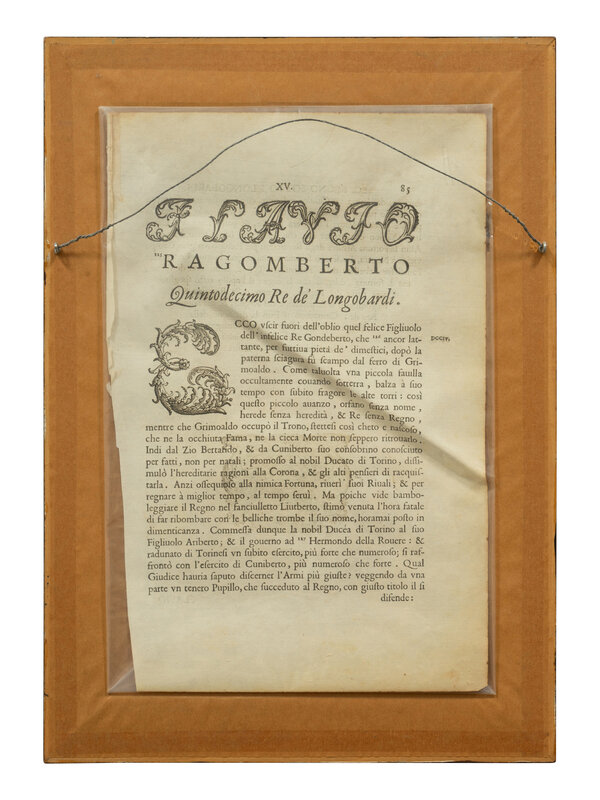 XV. 85
FLAVIO
RAGOMBERTO
Quintodecimo Re de' Longobardi.
ECCO vscir fuori dell'oblio quel felice Figliuolo
dell'infelice Re Gondeberto, che ancor lat-
tante, per furtiua pietà de' dimestici, dopò la
paterna sciagura fù scampato dal ferro di Gri-
moaldo. Come taluolta vna piccola fauilla
occultamente couando sotterra, balza à suo
tempo con subito fragore le alte torri: così
questo piccolo auanzo, orfano senza nome,
herede senza heredità, & Re senza Regno,
mentre che Grimoaldo occupò il Trono, stettesi così cheto e nascoso,
che ne la occhiuta Fama, ne la cieca Morte non seppero ritrouarlo.
Indi dal Zio Bertarido, & da Cuniberto suo consobrino conosciuto
per fatti, non per natali; promosso al nobil Ducato di Torino, dissi-
mulò l'hereditarie ragioni alla Corona, & gli alti pensieri di racquis-
tarla. Anzi ossequioso alla nimica Fortuna, riuerì suoi Riuali; & per
regnare à miglior tempo, al tempo seruì. Ma poiche vide bambo-
leggiare il Regno nel fanciulletto Liutberto, stimò venuta l'hora fatale
di far ribombare con le belliche trombe il suo nome, horamai posto in
dimenticanza. Commessa dunque la nobil Ducea di Torino al suo
Figliuolo Ariberto; & il gouerno ad Hermondo della Rouere: &
radunato di Torinesi vn subito esercito, più forte che numeroso; si raf-
frontò con l'esercito di Cuniberto, più numeroso che forte. Qual
Giudice hauria saputo discerner l'Armi più giuste? veggendo da vna
parte vn tenero Pupillo, che succeduto al Regno, con giusto titolo il si
difende: